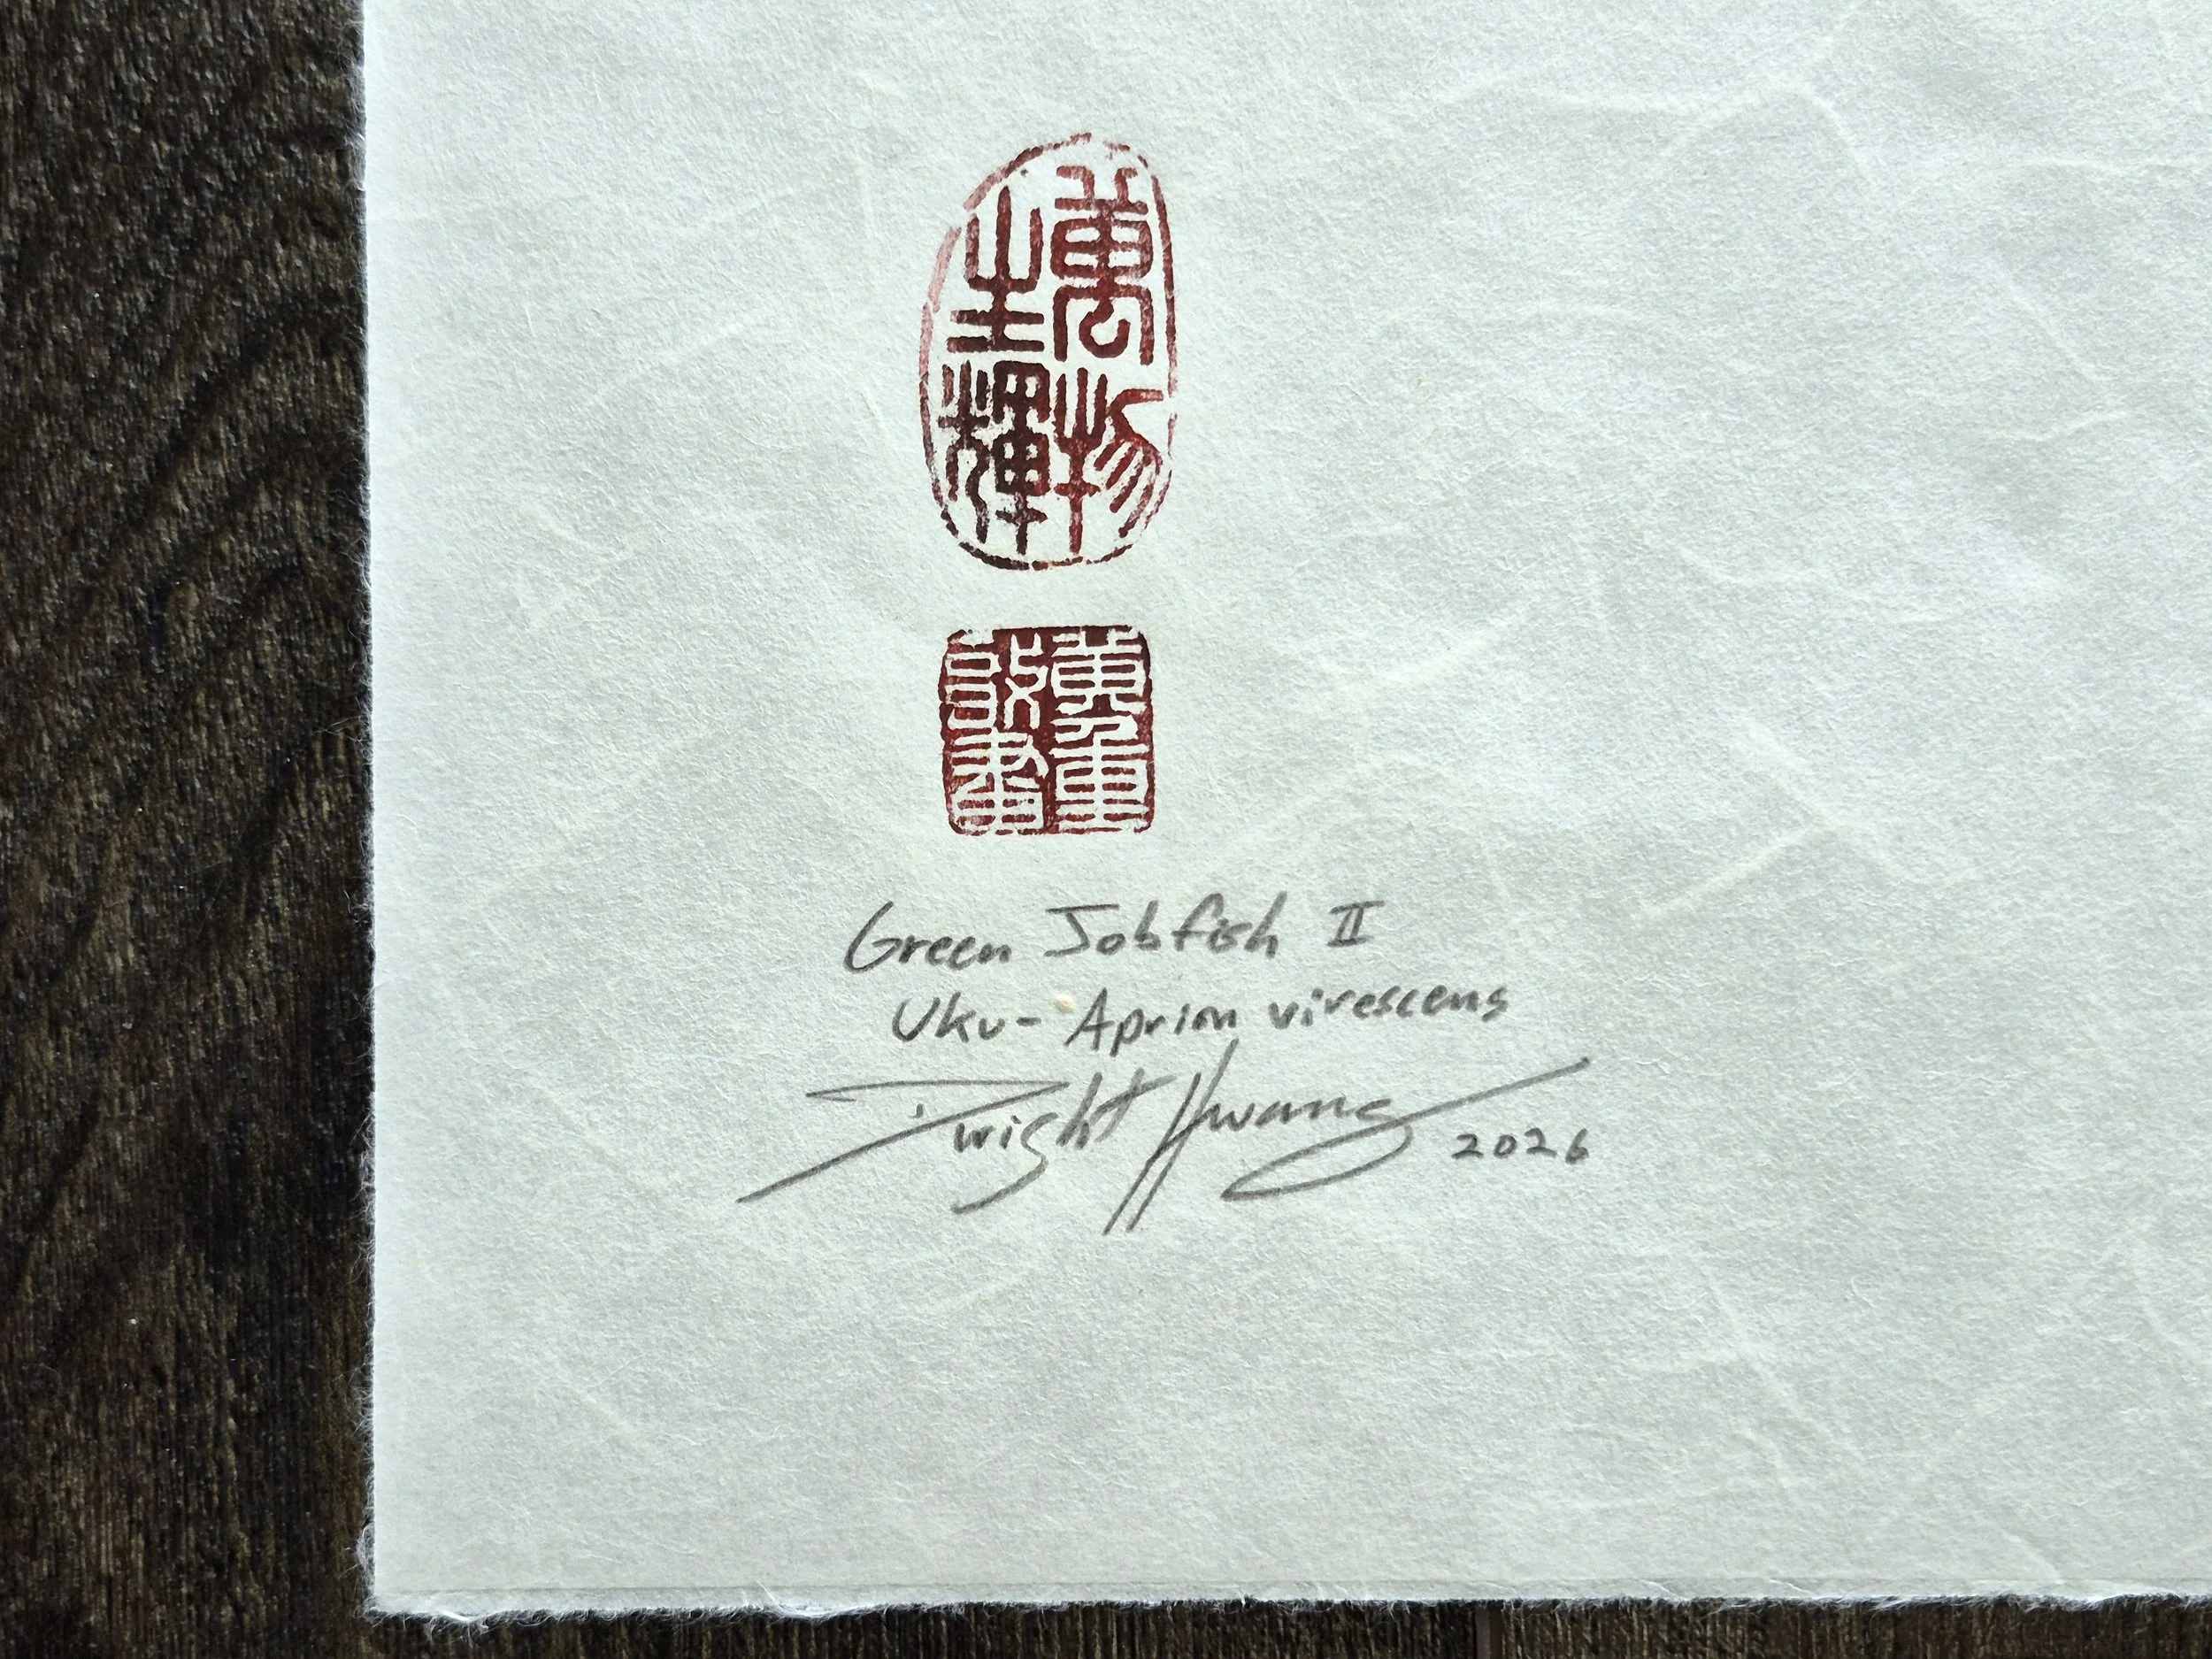 萬物
生輝
Green Jobfish II
Uku- Aprion virescens
Dwight Hwang 2026